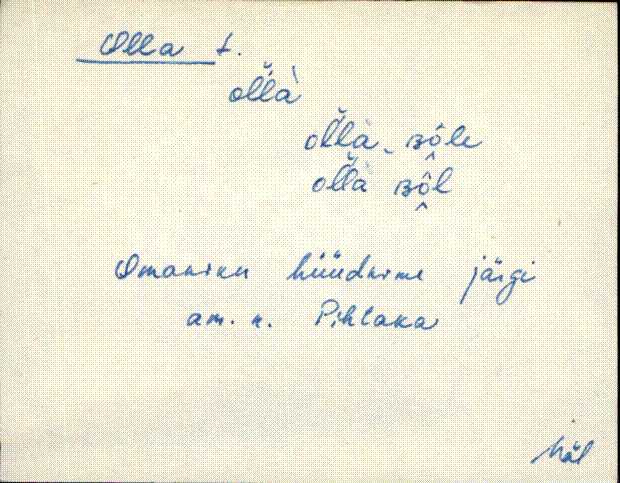 Olla t.
ol̆l̆à
ol̆l̆a_ sôle
ol̆l̆à sôl
Omaniku hüüdnime järgi
am. n. Pihlaka
Häl